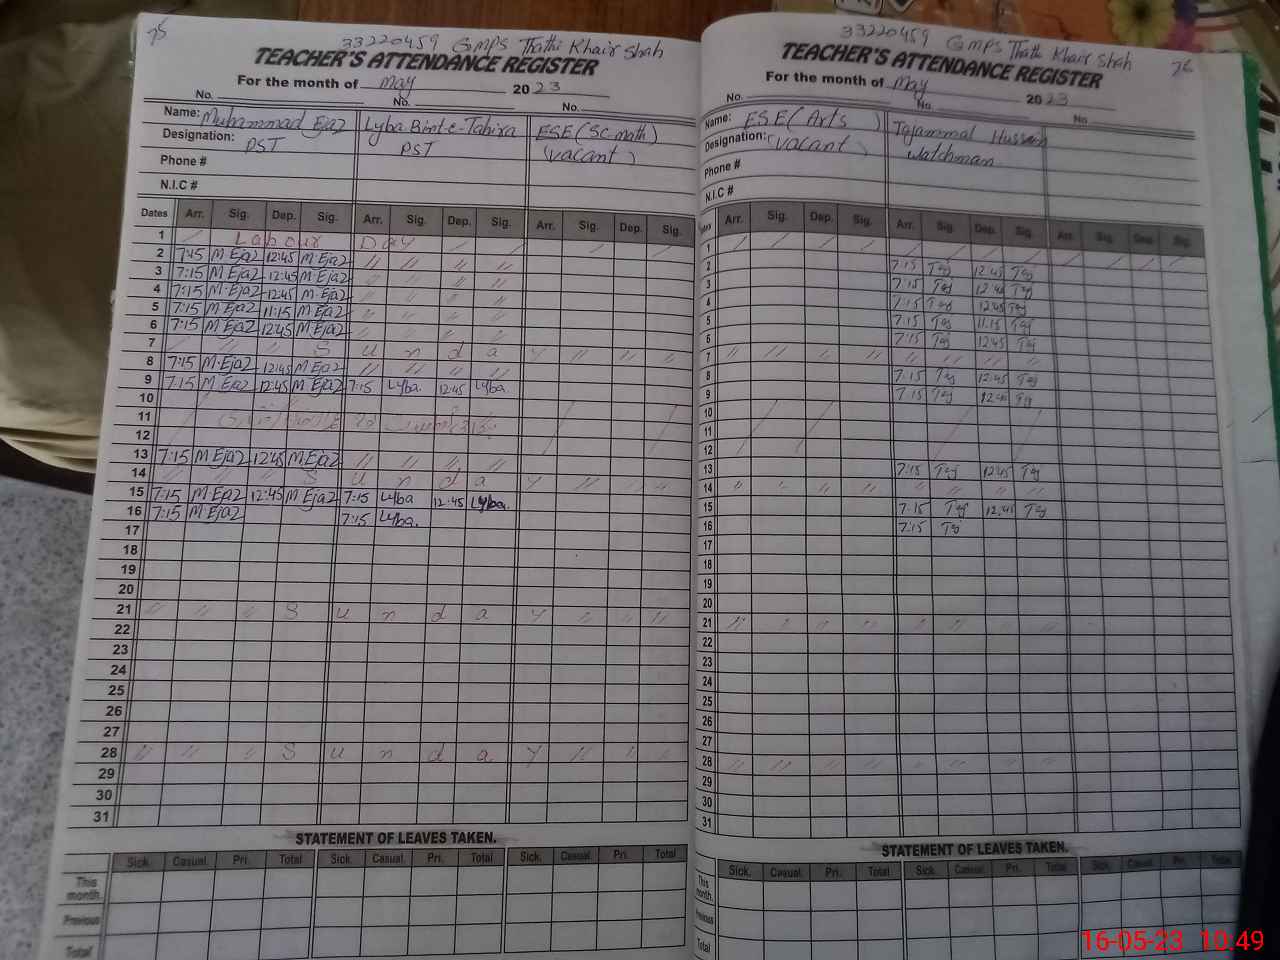 75
33220459 GMPS Thathi Khair Shah
TEACHER'S ATTENDANCE REGISTER
For the month of May 2023
No. No. No.
Name: Muhammad Ejaz Lyba Bint-e-Tahira ESE (Sc math)
Designation: PST PST (Vacant)
Phone #
N.I.C #
Dates Arr. Sig. Dep. Sig. Arr. Sig. Dep. Sig. Arr. Sig. Dep. Sig.
1 Labour Day
2 7:45 M Ejaz 12:45 M.Ejaz // // // //
3 7:15 M Ejaz 12:45 M.Ejaz // // // //
4 7:15 M.Ejaz 12:45 M.Ejaz // // // //
5 7:15 M.Ejaz 11:15 M.Ejaz // // // //
6 7:15 M Ejaz 12:45 M.Ejaz // // // //
7 // // // S u n d a y // // //
8 7:15 M.Ejaz 12:45 M Ejaz // // // //
9 7:15 M.Ejaz 12:45 M Ejaz 7:15 Lyba. 12:45 Lyba.
10
11
12
13 7:15 M Ejaz 12:45 M Ejaz // // // //
14 // // // S u n d a y // // //
15 7:15 M.Ejaz 12:45 M Ejaz 7:15 Lyba 12:45 Lyba.
16 7:15 M Ejaz 7:15 Lyba.
17
18
19
20
21 // // // S u n d a y // // //
22
23
24
25
26
27
28 // // // S u n d a y // // //
29
30
31
STATEMENT OF LEAVES TAKEN.
Sick. Casual. Pri. Total Sick. Casual. Pri. Total Sick. Casual. Pri. Total
This month.
Previous
Total
76
33220459 GMPS Thathi Khair Shah
TEACHER'S ATTENDANCE REGISTER
For the month of May 2023
No. No. No.
Name: ESE (Arts) Tajammal Hussain
Designation: (Vacant) Watchman
Phone #
N.I.C #
Dates Arr. Sig. Dep. Sig. Arr. Sig. Dep. Sig. Arr. Sig. Dep. Sig.
1
2 7:15 Taj 12:45 Taj
3 7:15 Taj 12:45 Taj
4 7:15 Taj 12:45 Taj
5 7:15 Taj 11:15 Taj
6 7:15 Taj 12:45 Taj
7 // // // // // // // //
8 7:15 Taj 12:45 Taj
9 7:15 Taj 12:45 Taj
10
11
12
13 7:15 Taj 12:45 Taj
14 // // // // // // // //
15 7:15 Taj 12:45 Taj
16 7:15 Taj
17
18
19
20
21 // // // // // // // //
22
23
24
25
26
27
28 // // // // // // // //
29
30
31
STATEMENT OF LEAVES TAKEN.
Sick. Casual. Pri. Total Sick. Casual. Pri. Total Sick. Casual. Pri. Total
This month.
Previous
Total
16-05-23 10:49